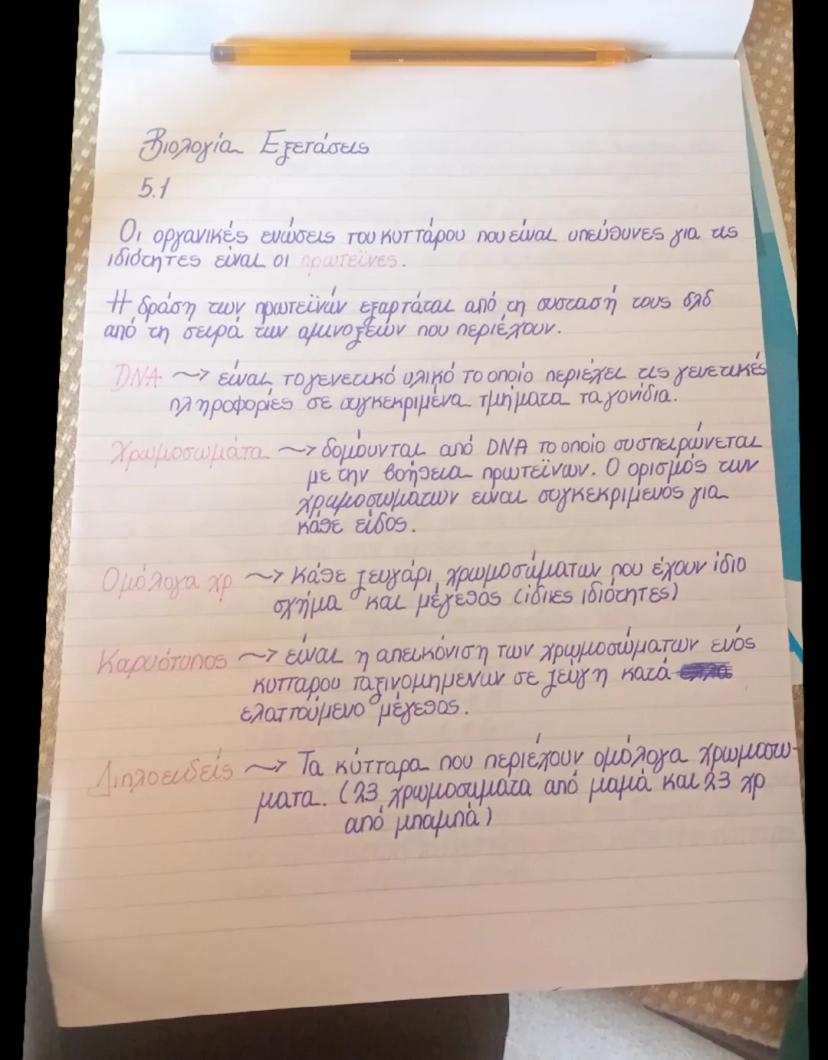 Βιολογία Εξετάσεις
5.1
Οι οργανικές ενώσεις του κυττάρου που είναι υπεύθυνες για τις
ιδιότητες είναι οι πρωτεΐνες.
Η δράση των πρωτεϊνών εξαρτάται από τη συστασή τους δλδ
από τη σειρά των αμινοξέων που περιέχουν.
DNA ~> είναι το γενετικό υλικό το οποίο περιέχει τις γενετικές
πληροφορίες σε συγκεκριμένα τμήματα τα γονίδια.
Χρωμοσωμάτα ~> δομούνται από DNA το οποίο συσπειρώνεται
με την βοήθεια πρωτεϊνων. Ο ορισμός των
χρωμοσωμάτων είναι συγκεκριμενος για
κάθε είδος.
Ομόλογα χρ ~> Κάθε ζευγάρι χρωμοσώματων που έχουν ίδιο
σχήμα και μέγεθος (ίδιες ιδιότητες)
Καρυότυπος ~> είναι η απεικόνιση των χρωμοσώματων ενός
κυτταρου ταξινομημενων σε ζεύγη κατά
ελαττούμενο μέγεθος.
Διπλοειδείς ~> Τα κύτταρα που περιέχουν ομόλογα χρωμοσω-
ματα. (23 χρωμοσωματα από μαμά και 23 χρ
από μπαμπά)